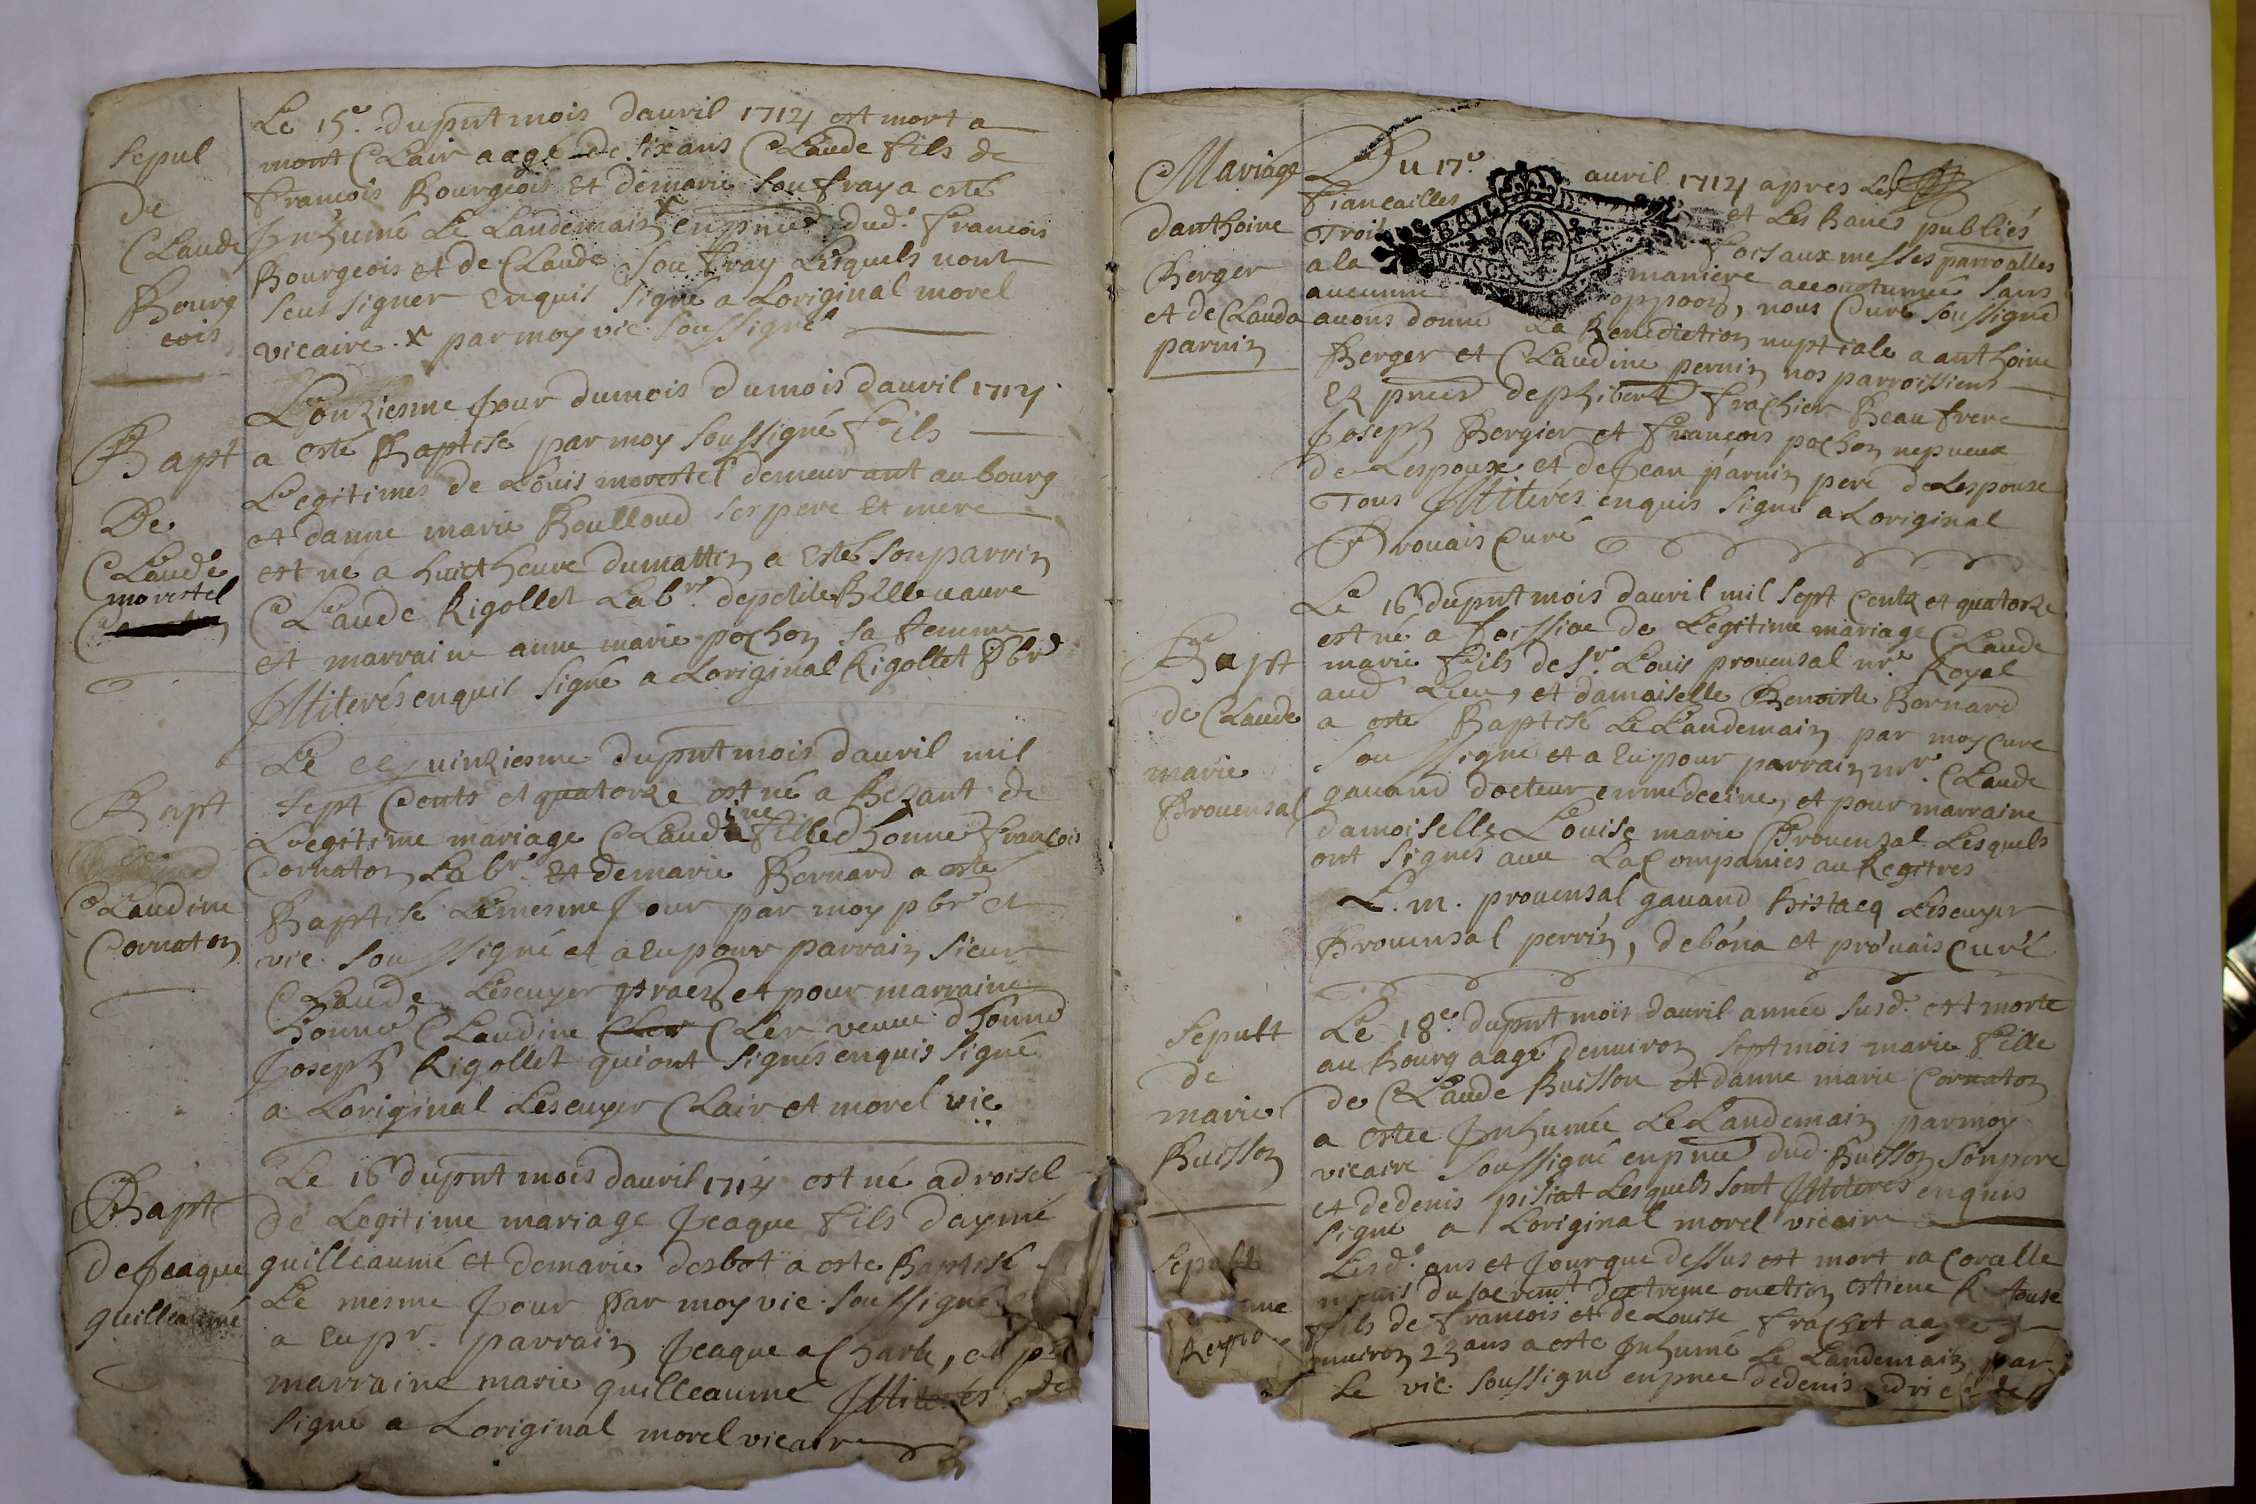 Sepul
de
Claude
Bourg
eois
Le 15e. du pnt mois dauril 1714 est mort a
mont Clair aagé de six ans Claude fils de
francois Bourgeois et demarie soufray a esté
Inhumé Le Landemain x en pnce dud. francois
Bourgeois et de Claude soufray Lesquels nont
sceus signer enquis signé a Loriginal morel
vicaire. x par moy vic. soussigné
Bapt
De
Claude
morestel
Lonziesme Jour dumois dumois dauril 1714
a esté Baptisé par moy soussigné fils
Legitimes de Louis morestel demeurant au bourg
et danne marie Boulloud ses pere et mere
est né a huict heure dumattin a esté son parrin
Claude Rigollet Labr. depetite Bellevaure
et marraine anne marie pochon sa femme
Illiterés enquis signé a Loriginal Rigollet pbre
Bapt
de
Claudine
Cornaton
Le quinziesme dupnt mois dauril mil
sept Cents et quatorze est né a Bezant de
Legitime mariage Claudine fille dhonne francois
Cornaton Labr. et demarie Bernard a esté
Baptisé Lemesme Jour par moy pbre et
vic. soussigné et a eu pour parrain sieur
Claude Lescuyer et pour marraine
honne Claudine Cler Cler veuue dhonne
Joseph Rigollet qui ont signés enquis signé
a Loriginal Lescuyer Clair et morel vic.
Bapt
de Jeaque
guilleaumé
Le 16 dupnt mois dauril 1714 est né adroisel
de Legitime mariage Jeaque fils daymé
guilleaumé et demarie desbot a esté Baptisé
Le mesme Jour Par moy vic. soussigné
a eu pr. parrain Jeaque aCharle, et pr
marraine marie guilleaume Illiterés
signé a Loriginal morel vicaire
Mariage
danthoine
Berger
et de Clauda
parnin
Du 17e. auril 1714 apres Les
fiancailles et Les Bancs publiés
Trois fois aux messes parroalles
a la maniere accoutumée sans
aucunne oppoon, nous Curé soussigné
auons donné La Benediction nuptiale a anthoine
Berger et Claudine pernin nos parroissiens
Ez pnces de phibert frachier Beaufrere
Joseph Bergier et francois pochon nepueux
de Lespoux et de Jean parnin pere de Lespouse
Tous Illiterés enquis signé a Loriginal
Prouais Curé
Bapt
de Claude
marie
Prouensal
Le 16 dupnt mois dauril mil sept Centz et quatorze
est né a foissiae de Legitime mariage Claude
marie fils de sr. Louis prouensal nre. Royal
aud Lieu, et damoiselle Benoiste Bernard
a esté Baptisé Le Landemain par moy curé
soussigné et a eu pour parrain mr. Claude
gauand docteur enmedecine, et pour marraine
damoiselle Louise marie Prouensal Lesquels
ont signés auec La Compamies au Regitres
L. m. prouensal gauand Lescuyer
Prouensal perrin, debona et prouais Curé
Sepult
de
marie
Buisson
Le 18e. dupnt mois dauril année susd. est morte
au Bourg aagé denuiron sept mois marie fille
de Claude Buisson et danne marie Cornaton
a estée Inhumée Le Landemain parmoy
vicaire soussigné enpnce dud. Buisson son pere
et dedenis pisiat Lesquels sont Illiterés enquis
signé a Loriginal morel vicaire
Sepult
Lesd. ans et Jour que dessus est mort
munis du sacremt dextreme onction estiene
fils de francois et de Louise frachet aagé
enuiron 23 ans a esté Inhumé Le Landemain par
Le vic. soussigné enpnce dedenis